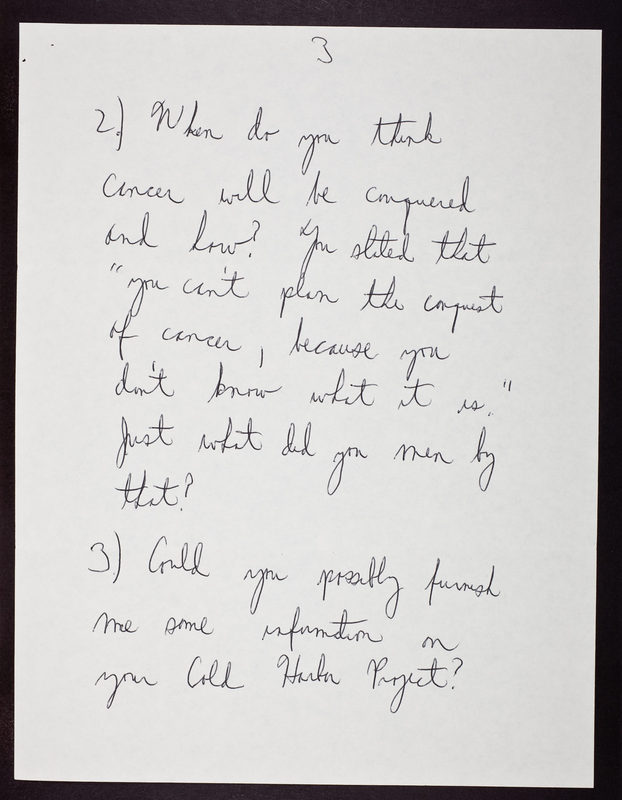 3
2.) When do you think
cancer will be conquered
and how? You stated that
"you can't plan the conquest
of cancer, because you
don't know what it is."
Just what did you men by
that?
3) Could you possibly furnish
me some information on
your Cold Harbor Project?